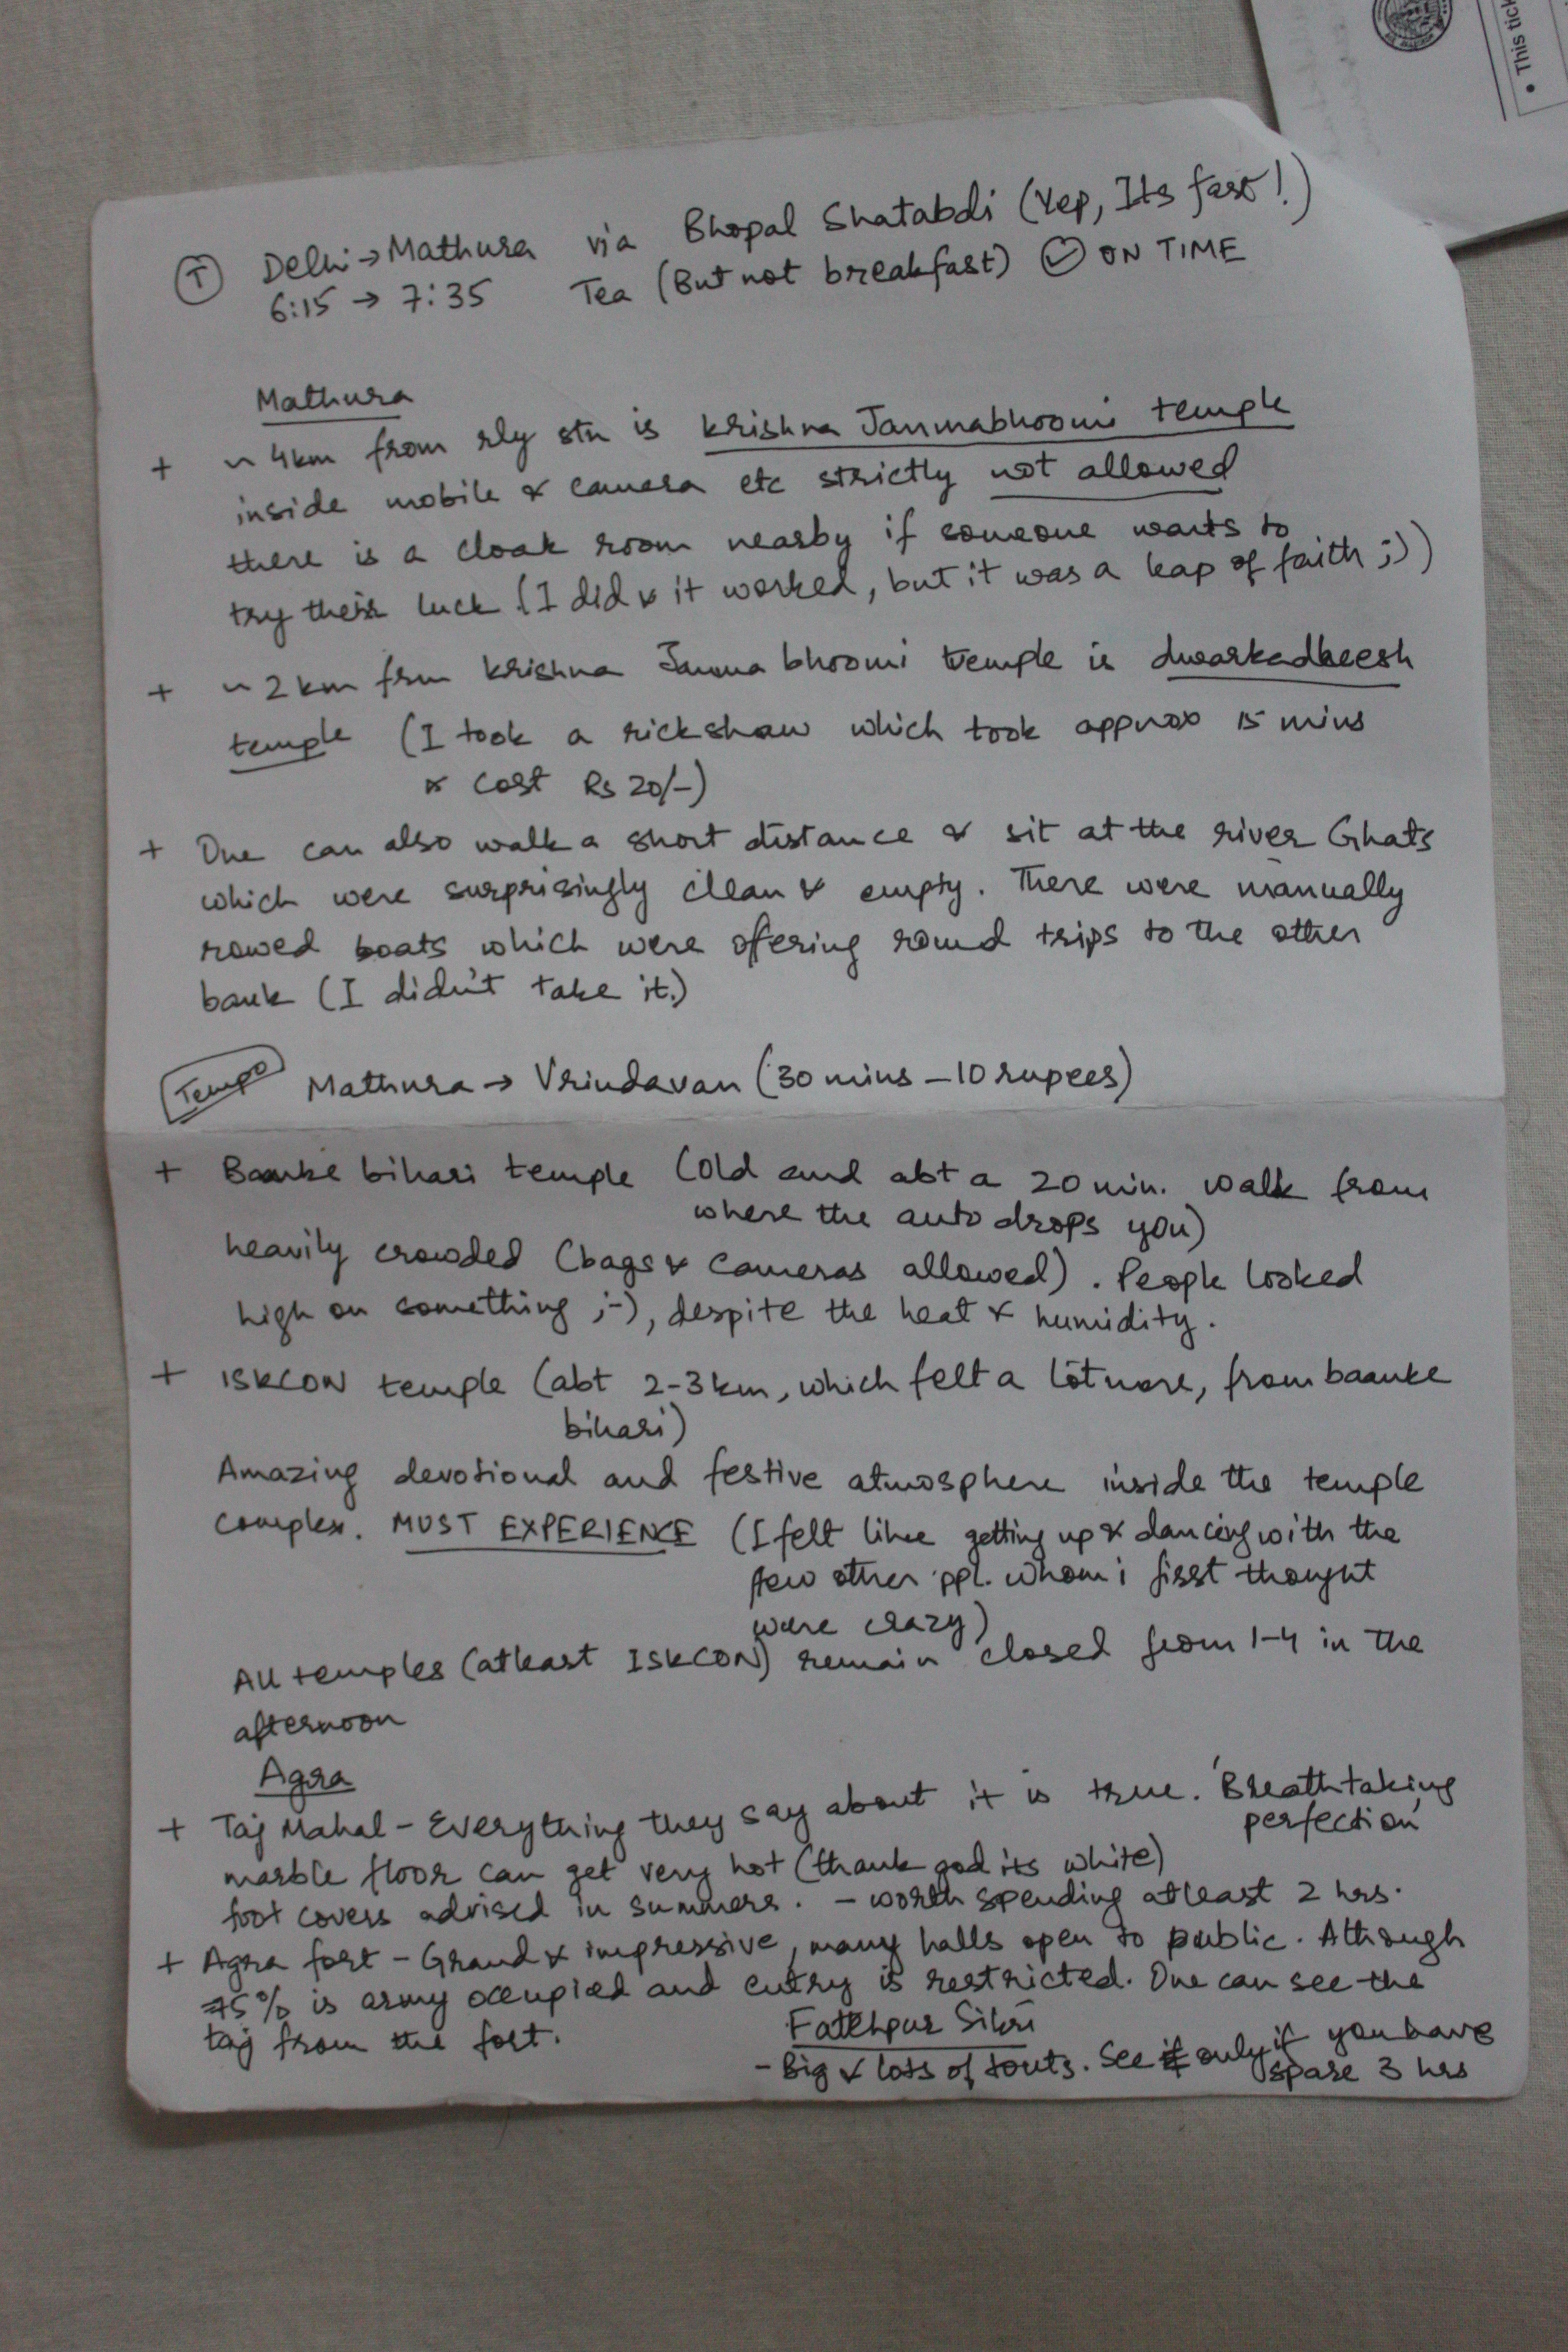 Ⓣ Delhi → Mathura via Bhopal Shatabdi (Yep, Its fast!)
6:15 → 7:35 Tea (But not breakfast) ✓ ON TIME
Mathura
+ ~ 4km from rly stn is Krishna Janmabhoomi temple
inside mobile & camera etc strictly not allowed
there is a cloak room nearby if someone wants to
try their luck (I did & it worked, but it was a leap of faith ;))
+ ~ 2 km from Krishna Janmabhoomi temple is dwarkadheesh
temple (I took a rickshaw which took approx 15 mins
& cost Rs 20/-)
+ One can also walk a short distance & sit at the river Ghats
which were surprisingly clean & empty. There were manually
rowed boats which were offering round trips to the other
bank (I didn't take it.)
Tempo Mathura → Vrindavan (30 mins - 10 rupees)
+ Baanke bihari temple (Old and abt a 20 min. walk from
where the auto drops you)
heavily crowded (bags & cameras allowed). People looked
high on something ;-), despite the heat & humidity.
+ ISKCON temple (abt 2-3 km, which felt a lot more, from baanke
bihari)
Amazing devotional and festive atmosphere inside the temple
complex. MUST EXPERIENCE (I felt like getting up & dancing with the
few other ppl. whom i first thought
were crazy)
All temples (atleast ISKCON) remain closed from 1-4 in the
afternoon
Agra
+ Taj Mahal - Everything they say about it is true. 'Breathtaking
perfection'
marble floor can get very hot (thank god its white)
foot covers advised in summers. - worth spending atleast 2 hrs.
+ Agra fort - Grand & impressive, many halls open to public. Although
75% is army occupied and entry is restricted. One can see the
taj from the fort.
Fatehpur Sikri
- Big & lots of touts. See it only if you have
spare 3 hrs
• This tick